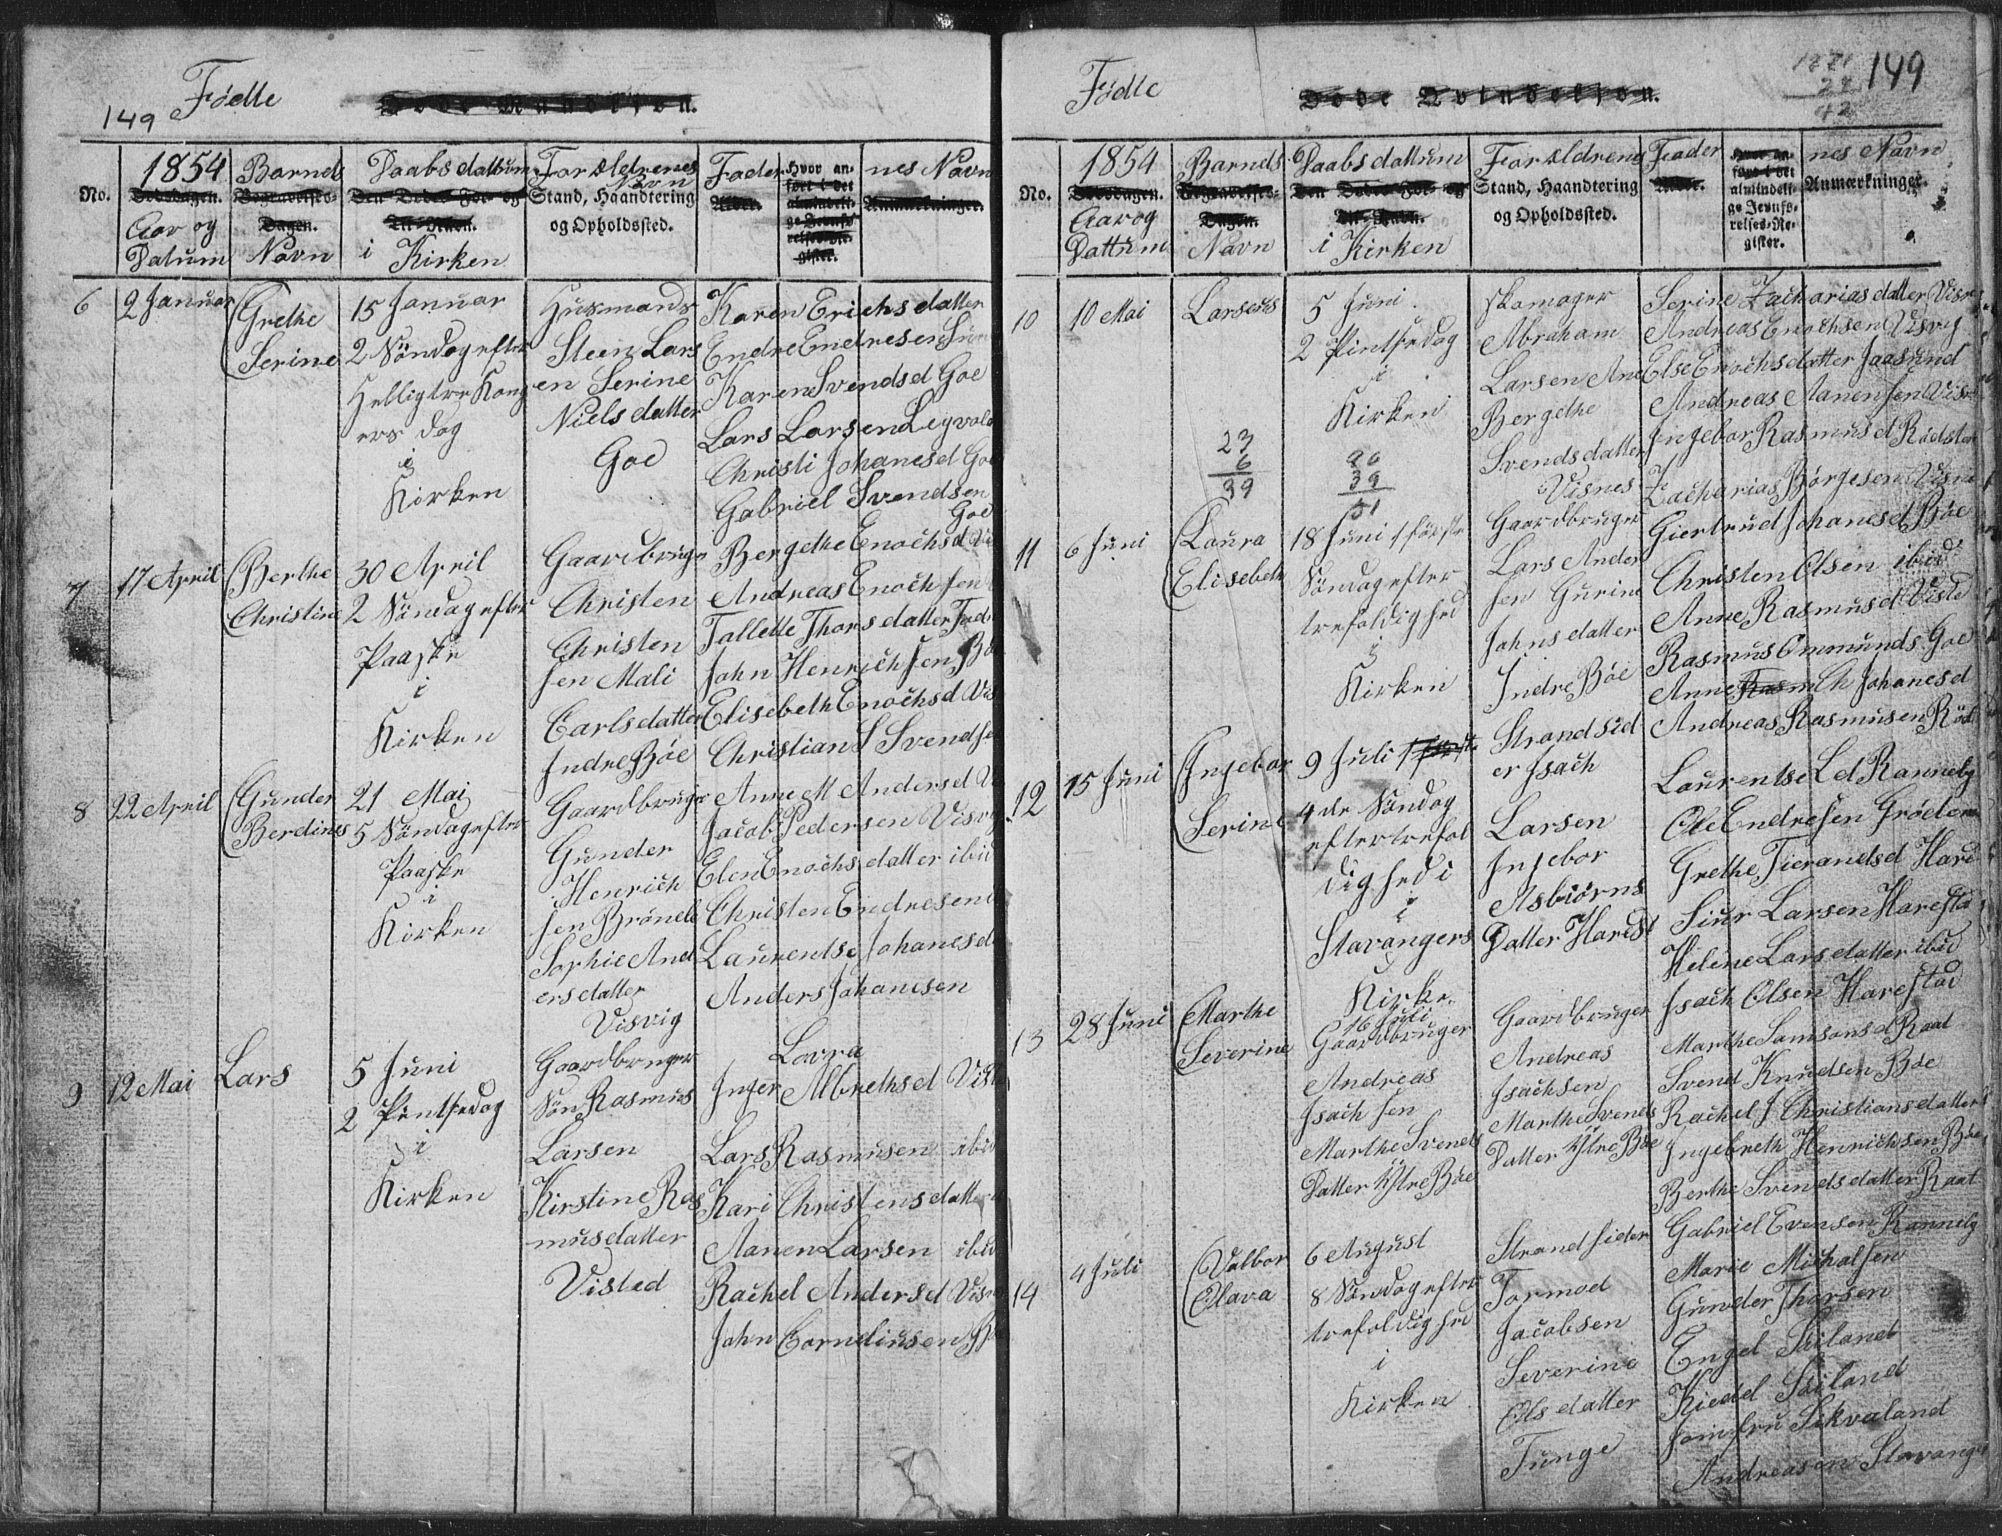 149
Fødte
Døde Mandkjøn.
No.
1854
Dødsdagen.
Aar og
Datum
Barnets
Begravelses-
Dagen.
Navn
Daabsdattum
Den Dødes For- og
Til-Navn.
i Kirken
Forældrenes
Navn
Stand, Haandtering
og Opholdssted.
Fader
Alder.
Hvor an-
ført i det
almindeli-
ge Jevnfø-
relses-Re-
gister.
nes Navn
Anmærkninger.
6
2 Januar
Grethe
Serine
15 Januar
2 Søndag efter
Helligtre Kong
ers dag
i
Kirken
Husmands
Steen Lars
en Serine
Nielsdatter
Goe
Karen Erichsdatter
Endre Endresen
Karen Svendsd Goe
Lars Larsen Leyvold
Christi Johanesd Goe
Gabriel Svendsen
Goe
7
17 April
Berthe
Christine
30 April
2 Søndag efter
Paaske
i
Kirken
Gaardbruger
Christen
Christen
sen Mali
Carlsdatter
Indre Bøe
Bergethe Enochsd
Andreas Enochsen
Tallette Thorsdatter
John Henrichsen
Elisebeth Enochsd Vis
Christian S Svendse
8
22 April
Gunder
Berdines
21 Mai
5 Søndag efter
Paaske
i
Kirken
Gaardbruger
Gunder
Henrich
sen Brønele
Sophie And
ersdatter
Visvig
Anne M Andersd
Jacob Pedersen Visvig
Elen Enochsdatter ibid
Christen Endresen
Laurentse Johanesd
Anders Johanesen
9
12 Mai
Lars
5 Juni
2 Pintsedag
i
Kirken
Gaardbruger
Søn Rasmus
Larsen
Kirstine Ras
musdatter
Vistad
Lovra
Inger Albrethsd
Lars Rasmusen ibid
Kari Christensdatter
Aanen Larsen ibid
Rachel Andersd
John Corneliusen
Fødte
Døde Qvindekjøn.
1871
29
42
149
No.
1854
Dødsdagen.
Aar og
Dattum
Barnds
Begravelses-
Dagen.
Navn
Daabsdattum
Den Dødes For- og
Til-Navn.
i Kirken
Forældrens
Stand, Haandtering
og Opholdssted.
Fader
Alder.
Hvor an-
ført i det
almindeli-
ge Jevnfø-
relses-Re-
gister.
nes Navn
Anmærkninger.
10
10 Mai
Larsens
5 Juni
2 Pintsedag
i
Kirken
23
6
39
90
39
51
skomager
Abraham
Larsen Ane
Bergethe
Svendsdatter
Visnes
Serine Zachariasdatter
Andreas Enochsen Visvig
Else Enochsdatter Jaasund
Andreas Aanensen
Ingebor Rasmusd
Zacharias Børgesen
11
6 Juni
Loura
Elisebeth
18 Juni 1 første
Søndag efter
trefoldighed
i
Kirken
Gaardbruger
Lars Ander
sen Gurine
Johnsdatter
Indre Bøe
Giertrud Johanesd Bøe
Christen Olsen ibid
Anne Rasmusd Viste
Rasmus Ommunds. Goe
Anne Rasm Ch Johanesd
Andreas Rasmusen
12
15 Juni
Ingebor
Serine
9 Juli 1 første
4de Søndag
efter trefol
dighed i
i
Stavangers
Kirke.
Strandsid
er Isach
Larsen
Ingebor
Asbiørns
Datter Harest
Laurentse L d Ranneby
Ole Endresen Grødem
Grethe Tierandsd
Siur Larsen Harestad
Heline Larsdatter ibid
Isach Olsen Harestad
13
28 Juni
Marthe
Severine
16 Juli
Gaardbruger
Andreas
Isach sen
Marthe Svends
Datter Ytre Bøe
Gaardbruger
Andreas
Isachsen
Marthe Svends
Datter Ytre Bøe
Marthe Samsonsd Raat
Svend Knudsen Bøe
Rachel J Christiansdatter
Ingebreth Henrichsen Bøe
Berthe Svendsdatter Raat
Gabriel Evensen Ranneby
14
4 Juli
Valbor
Olava
6 August
8 Søndag efter
trefoldighed
i
Kirken
Strandsider
Tormod
Jacobsen
Severine
Olsdatter
Tunge
Marie Michalsen
Gunder Thorsen
Engel Siiland
Kiedel Siiland
Jomfru Sikvaland
Andreasen Stavang